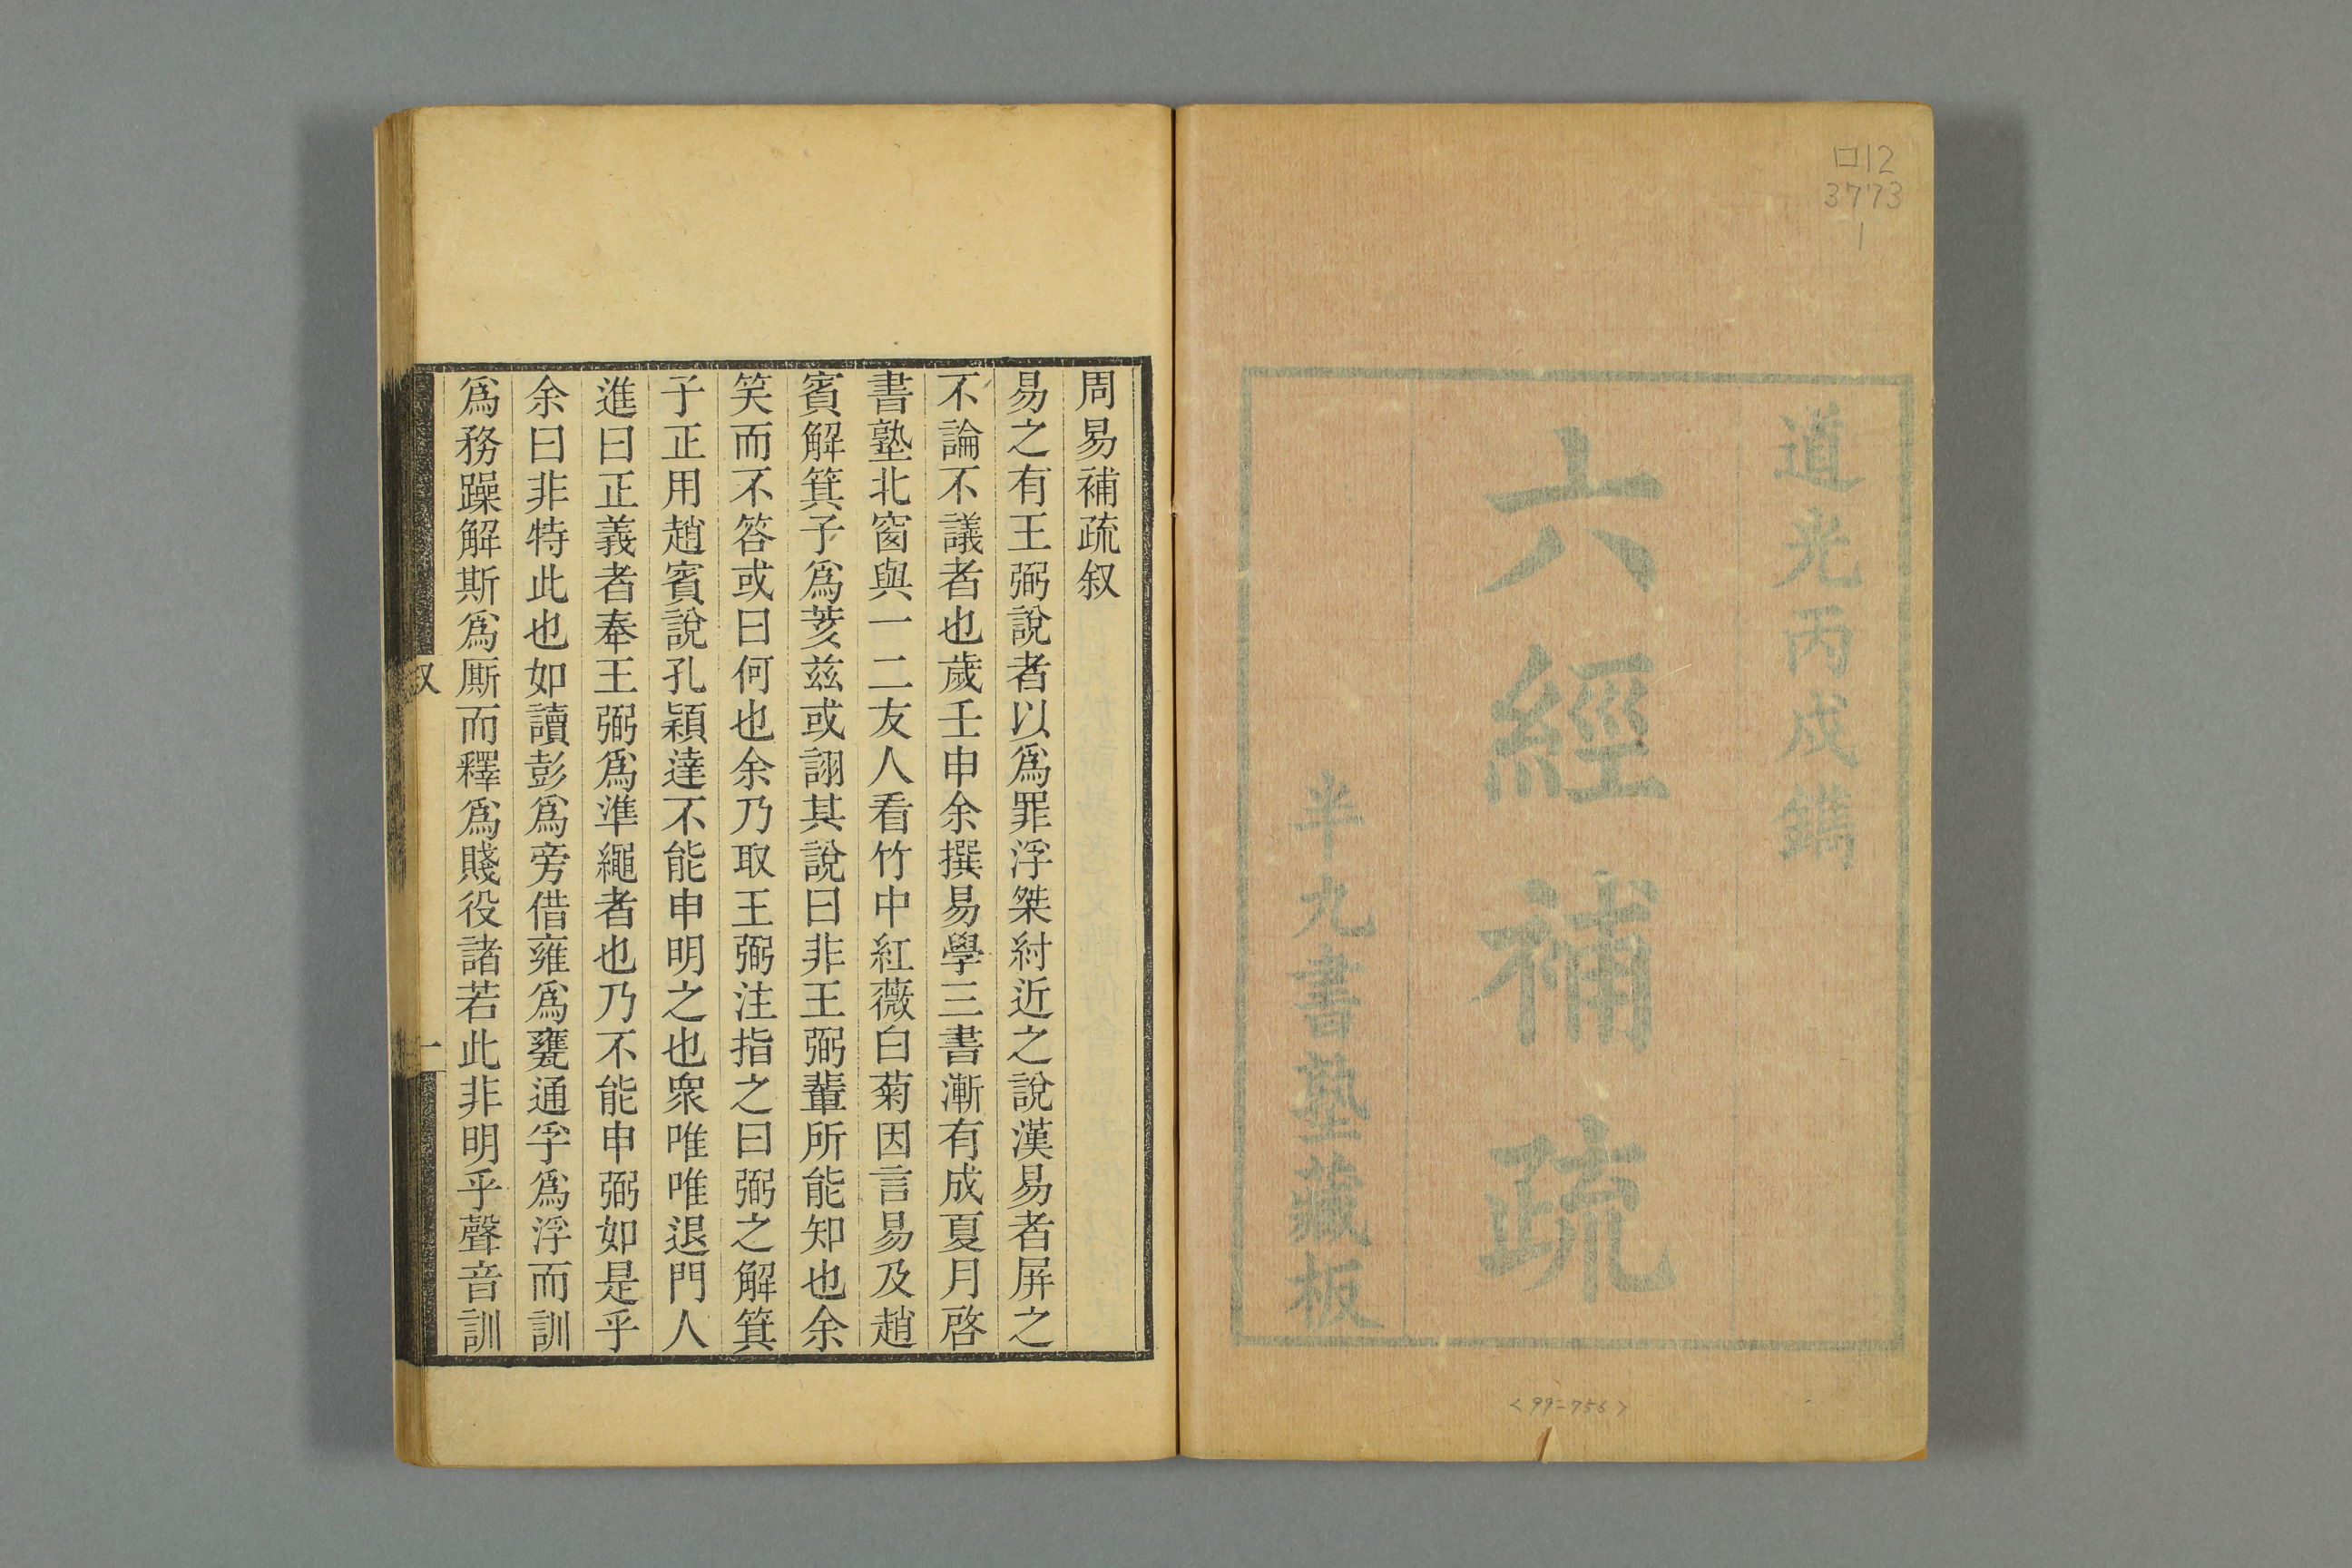 口12
3773
1
道光丙戌鐫
六經補疏
半九書塾藏板
<99-756>
周易補疏叙
易之有王弼說者以爲罪浮桀紂近之說漢易者屏之
不論不議者也歲壬申余撰易學三書漸有成夏月啓
書塾北窗與一二友人看竹中紅薇白菊因言易及趙
賓解箕子爲荄茲或詡其說曰非王弼輩所能知也余
笑而不答或曰何也余乃取王弼注指之曰弼之解箕
子正用趙賓說孔穎達不能申明之也衆唯唯退門人
進曰正義者奉王弼爲準繩者也乃不能申弼如是乎
余曰非特此也如讀彭爲旁借雍爲甕通孚爲浮而訓
爲務躁解斯爲厮而釋爲賤役諸若此非明乎聲音訓
叙
一